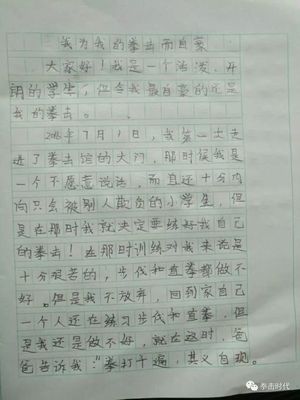 我为我的拳击而自豪
大家好！我是一个活泼、开
朗的学生，但令我最自豪的还是
我的拳击。
2015年7月1日，我第一次走
进了拳击馆的大门，那时候我是
一个不愿意说话，而且还十分内
向只会被别人欺负的小学生，但
是在那时我就决定要练好我自己
的拳击！在那时训练对我来说是
十分艰苦的，步伐和直拳都做不
好。但是我不放弃，回到家自己
一个人还在练习步伐和直拳，但
是我还是做不好，就在这时，爸
爸告诉我："拳打千遍，其义自现。
拳击时代